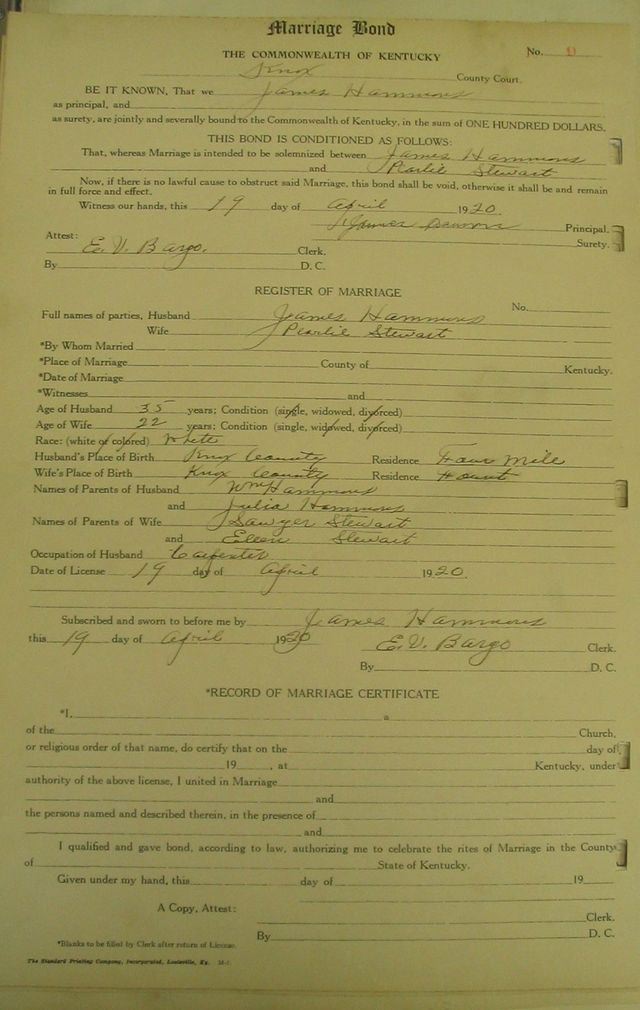 Marriage Bond
THE COMMONWEALTH OF KENTUCKY
No. 9
Knox County Court.
BE IT KNOWN, That we James Hammons
as principal, and
as surety, are jointly and severally bound to the Commonwealth of Kentucky, in the sum of ONE HUNDRED DOLLARS.
THIS BOND IS CONDITIONED AS FOLLOWS:
That, whereas Marriage is intended to be solemnized between James Hammons
and Pearlie Stewart
Now, if there is no lawful cause to obstruct said Marriage, this bond shall be void, otherwise it shall be and remain
in full force and effect.
Witness our hands, this 19 day of April 1920.
James Principal.
Attest: Surety.
E. V. Bargo. Clerk.
By D. C.
REGISTER OF MARRIAGE
No.
Full names of parties, Husband James Hammons
Wife Pearlie Stewart
*By Whom Married
*Place of Marriage County of Kentucky.
*Date of Marriage
*Witnesses and
Age of Husband 35 years; Condition (single, widowed, divorced)
Age of Wife 22 years; Condition (single, widowed, divorced)
Race: (white or colored) White
Husband's Place of Birth Knox County Residence Four Mile
Wife's Place of Birth Knox County Residence
Names of Parents of Husband Wm Hammons
and Julia Hammons
Names of Parents of Wife Sawyer Stewart
and Eleen Stewart
Occupation of Husband Carpenter
Date of License 19 day of April 1920.
Subscribed and sworn to before me by James Hammons
this 19 day of April 1920 E. V. Bargo Clerk.
By D. C.
*RECORD OF MARRIAGE CERTIFICATE
*I, a
of the Church,
or religious order of that name, do certify that on the day of
19 , at Kentucky, under
authority of the above license, I united in Marriage
and
the persons named and described therein, in the presence of
and
I qualified and gave bond, according to law, authorizing me to celebrate the rites of Marriage in the County
of State of Kentucky.
Given under my hand, this day of 19
A Copy, Attest:
Clerk.
By D. C.
*Blanks to be filled by Clerk after return of License.
The Standard Printing Company, Incorporated, Louisville, Ky.